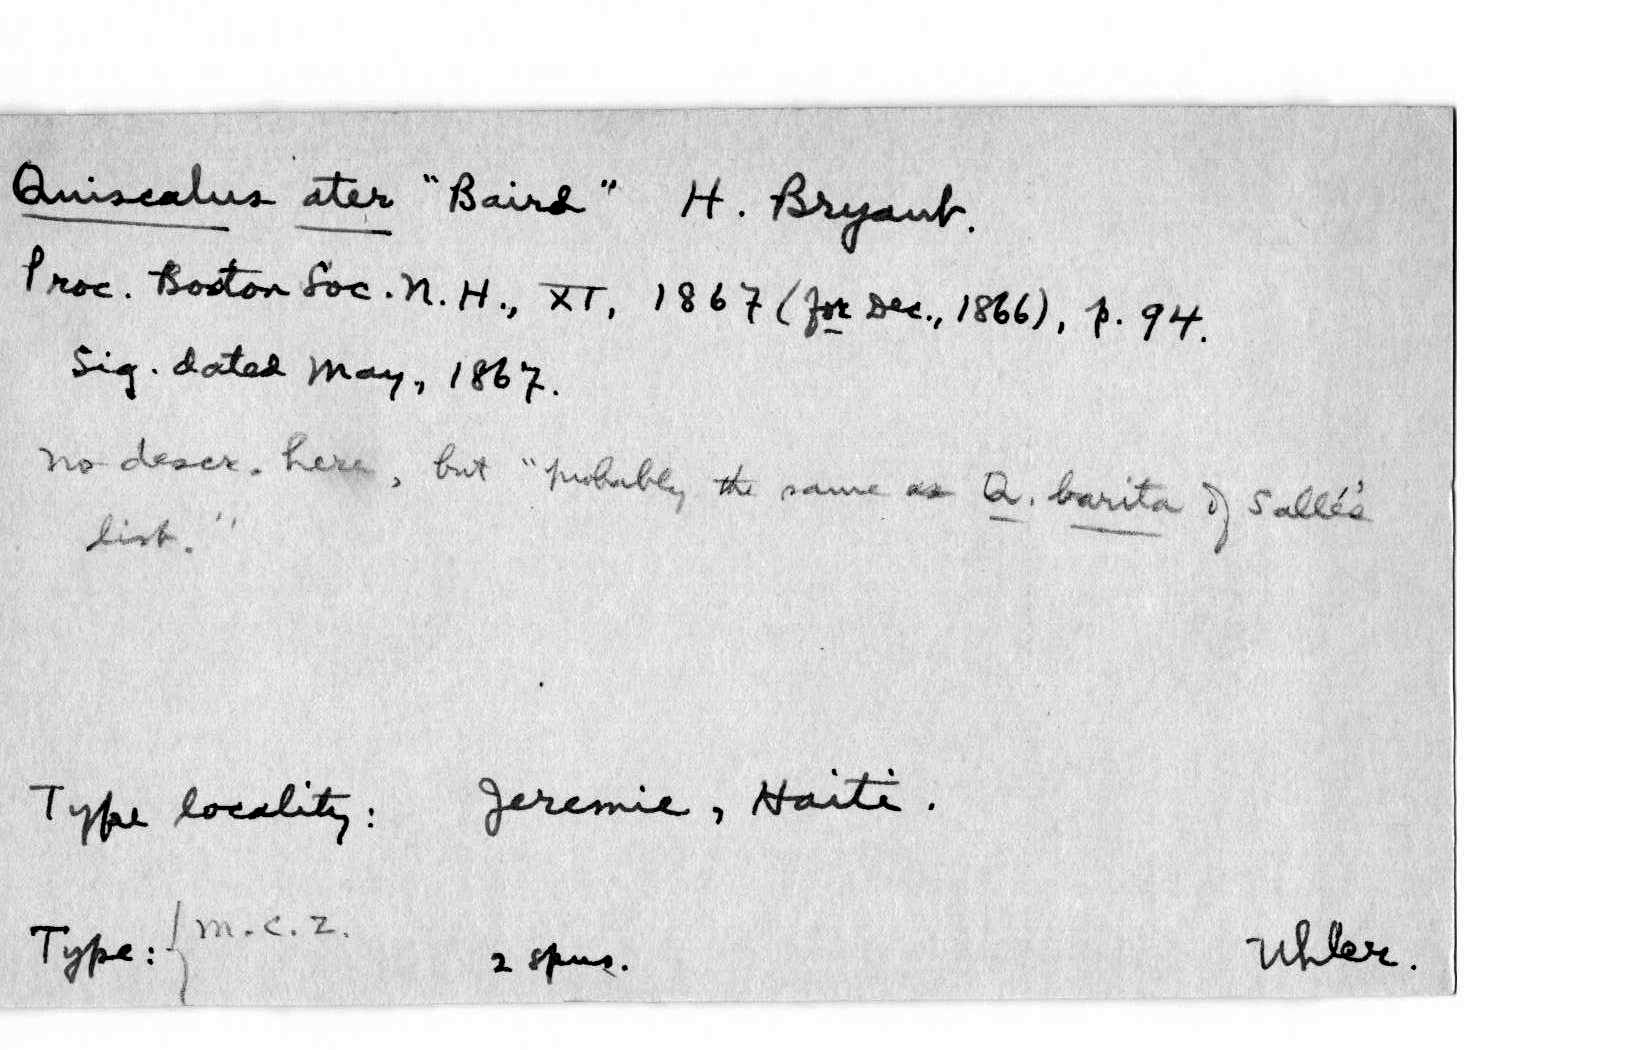 Quiscalus ater "Baird" H. Bryant.
Proc. Boston Soc. N. H., XI, 1867 (for Dec., 1866), p. 94.
Sig. dated May, 1867.
No descr. here, but "probably the same as Q. barita of Sallé's
list."
Type locality: Jeremie, Haiti.
Type: { M.C.Z. 2 spms. Uhler.